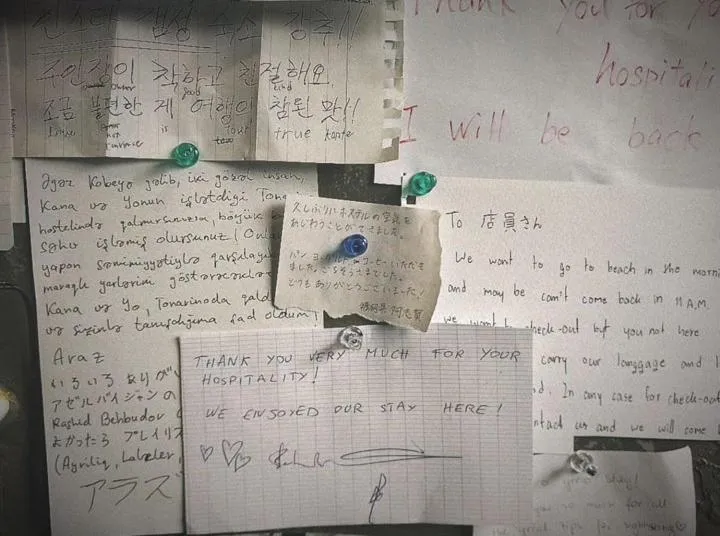 인스타 갬성 숙소 강추!!
주인장이 착하고 친절해요.
owner good kind
조금 불편한 게 여행의 참된 맛!!
is tour true
Thank you for yo
hospitali
I will be back
Əgər Kobeyə gəlib, iki gözəl insan,
Kana və Yonun işlətdiyi
hostelində qalmırsınızsa, böyük
səhv işləmiş olursunuz!
yapon səmimiyyətiylə
maraqlı yerlərini göstərəcəklər
Kana və Yo, Tonarinoda
və sizinlə tanışdığıma şad oldum!
Araz
いろいろありが
アゼルバイジャンの
Rashid Behbudov
よかったら プレイリス
(Ayriliq, Laleler,
アラズ
久しぶりにホステルの空気を
あじわうことができました。
パン ヨーグルト コーヒーいただき
ました。ごちそうさまでした。
とてもありがとうございました!
To 店員さん
We want to go to beach in the morni
and may be can't come back in 11 A.M.
we want check-out but you not here
carry our langgage and
In any case for check-out
ntact us and we will come
THANK YOU VERY MUCH FOR YOUR
HOSPITALITY!
WE ENJOYED OUR STAY HERE!
stay!
so much for all
great tips for sightseeing